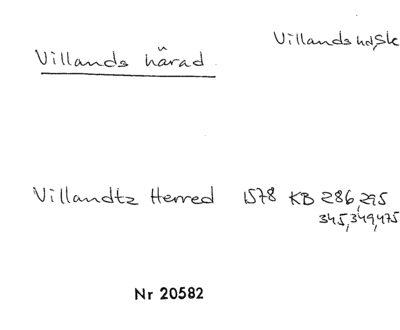 Villands hd, Sk
Villands härad
Villandtz Herred 1578 KB 286, 295
345, 349, 475
Nr 20582